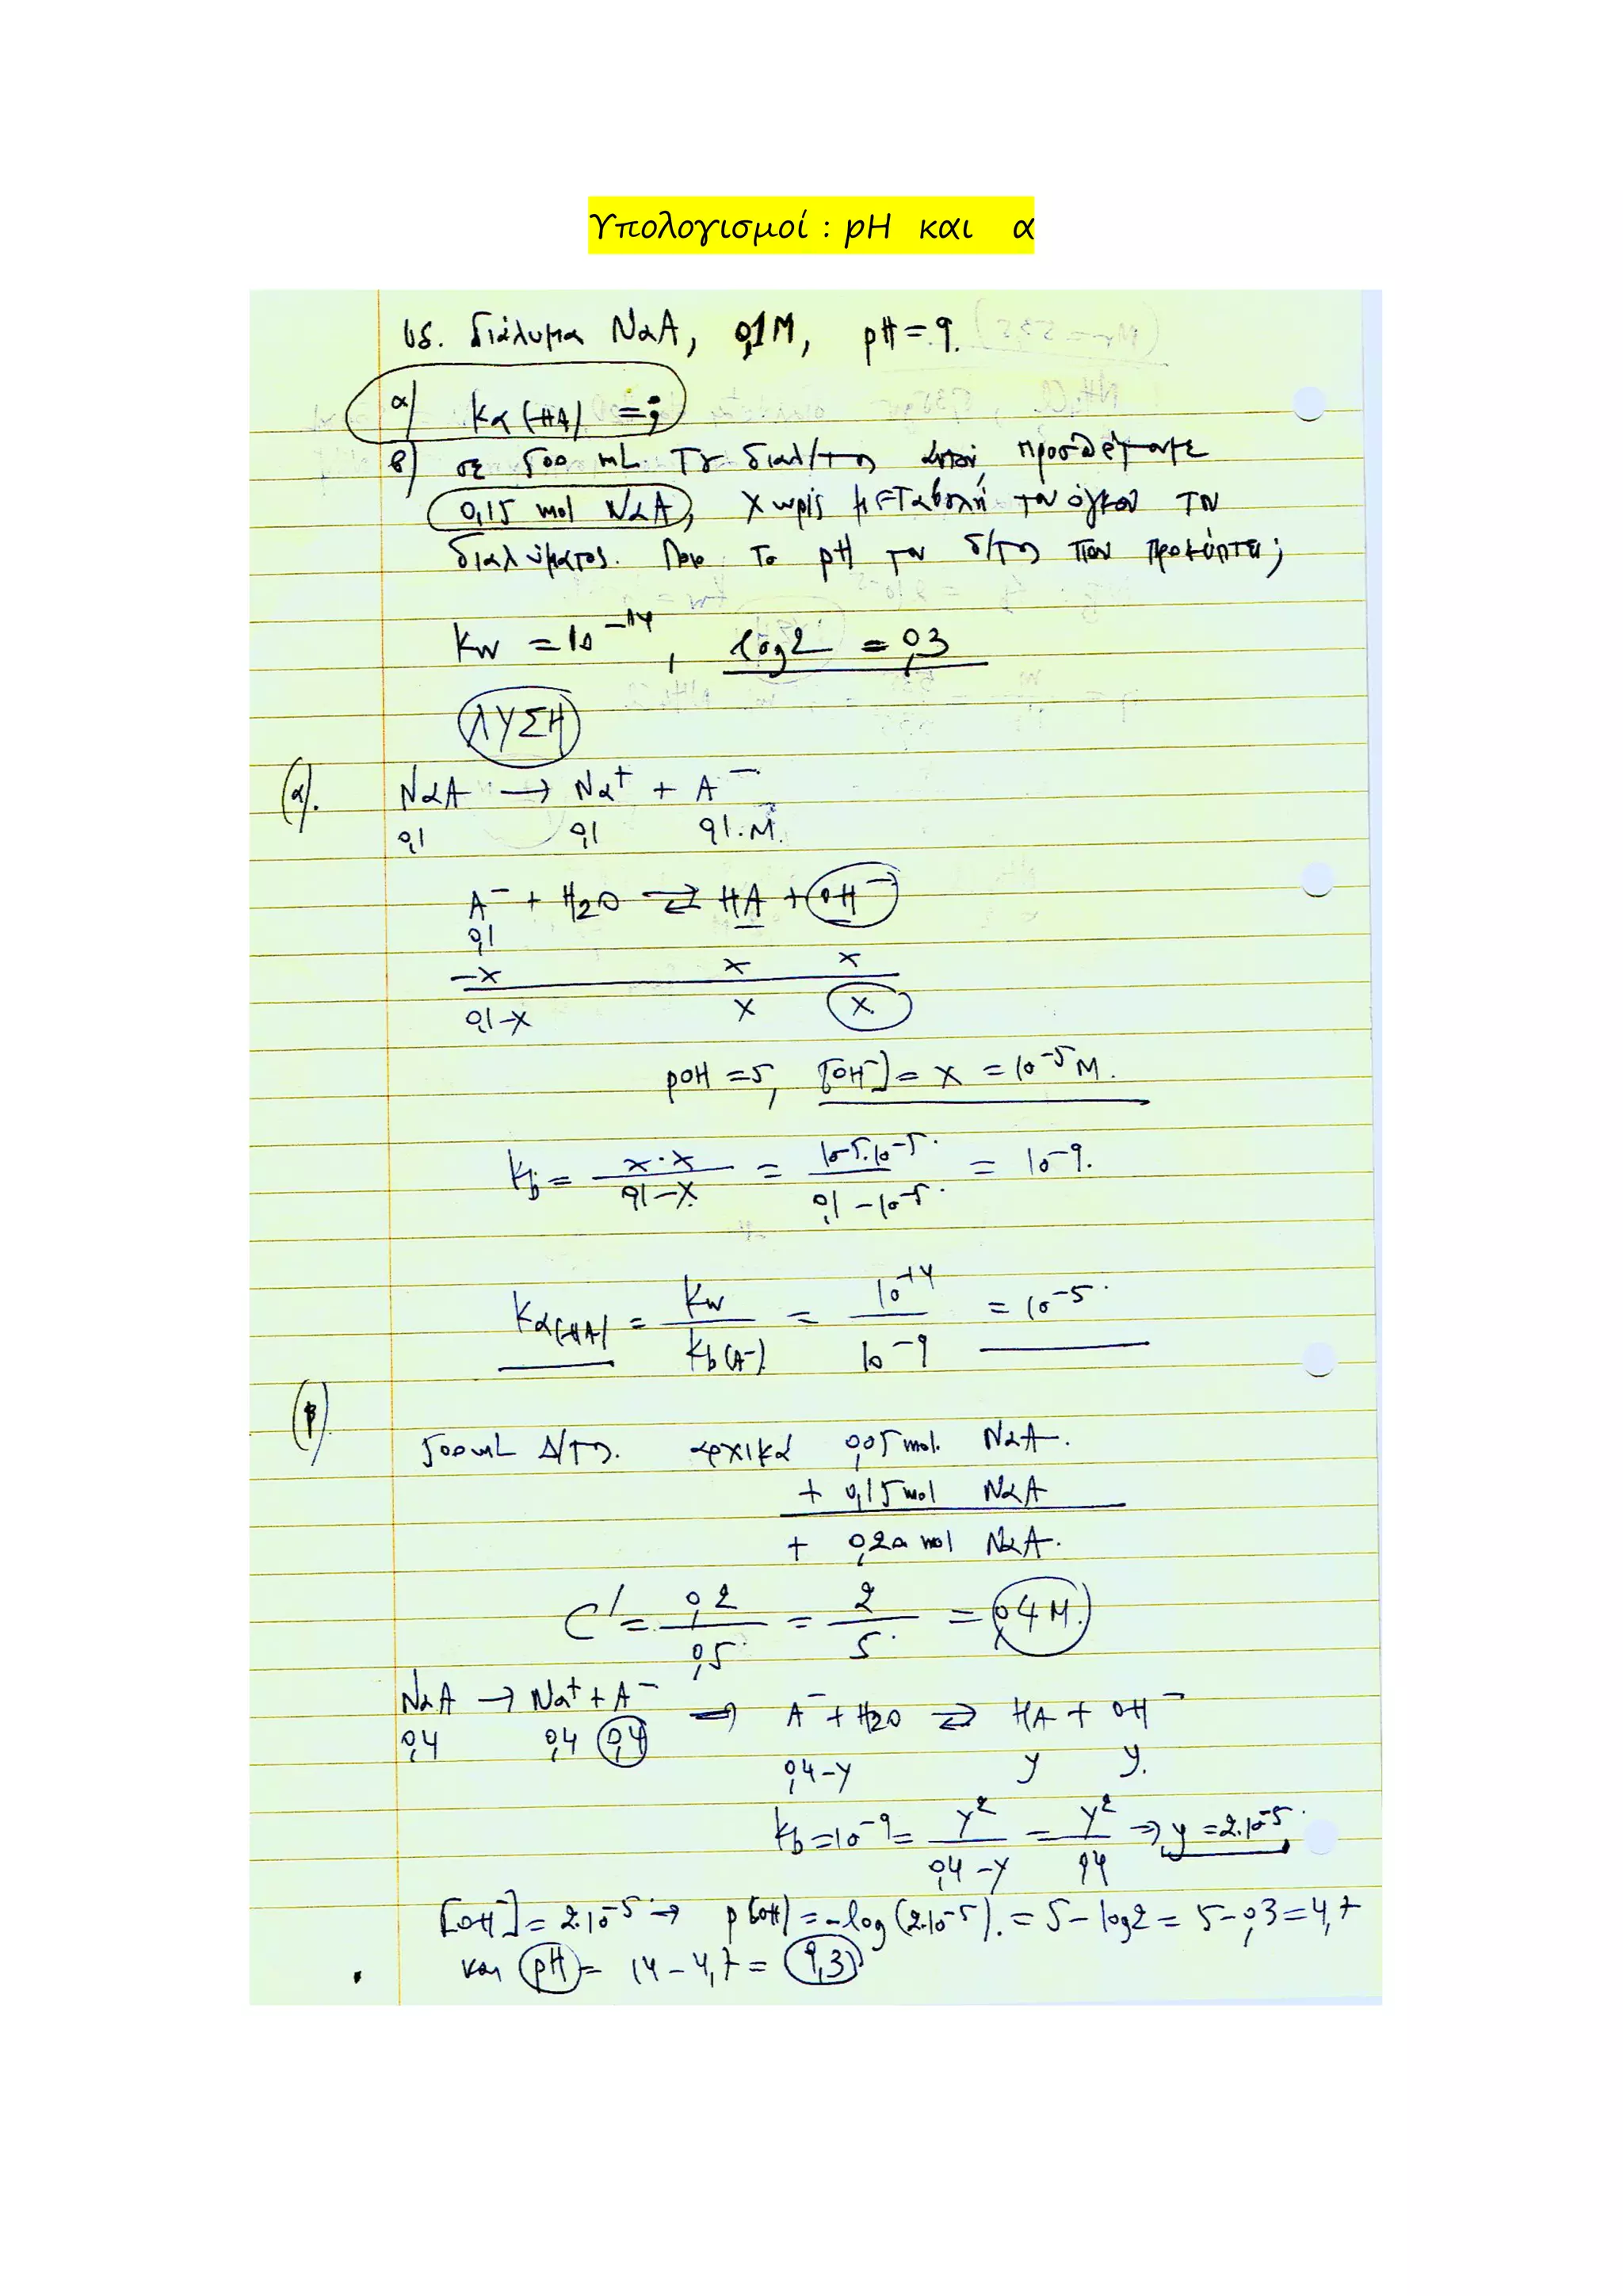 Υπολογισμοί : pH και α
υδ. διάλυμα NaA, 0,1M, pH = 9.
α) Ka (HA) = ;
β) σε 500 mL του διαλ/τος αυτού, προσθέτουμε
0,15 mol NaA, χωρίς μεταβολή του όγκου του
διαλύματος. Ποιο το pH του δ/τος που προκύπτει;
Kw = 10⁻¹⁴, log2 = 0,3
ΛΥΣΗ
(α). NaA → Na⁺ + A⁻
0,1 0,1 0,1 M.
A⁻ + H2O ⇄ HA + OH⁻
0,1
-x x x
0,1-x x x
pOH = 5, [OH⁻] = x = 10⁻⁵ M.
Kb = x·x / 0,1-x = 10⁻⁵·10⁻⁵ / 0,1-10⁻⁵ = 10⁻⁹.
Ka(HA) = Kw / Kb(A⁻) = 10⁻¹⁴ / 10⁻⁹ = 10⁻⁵.
(β).
500 mL Δ/τος. αρχικά 0,05 mol. NaA.
+ 0,15 mol NaA
+ 0,20 mol NaA.
C' = 0,2 / 0,5 = 2 / 5 = 0,4 M.
NaA → Na⁺ + A⁻ ⇒ A⁻ + H2O ⇄ HA + OH⁻
0,4 0,4 0,4 0,4-y y y.
Kb = 10⁻⁹ = y² / 0,4-y = y² / 0,4 ⇒ y = 2.10⁻⁵.
[OH⁻] = 2.10⁻⁵ → p[OH] = -log(2.10⁻⁵). = 5 - log2 = 5 - 0,3 = 4,7
και pH = 14 - 4,7 = 9,3